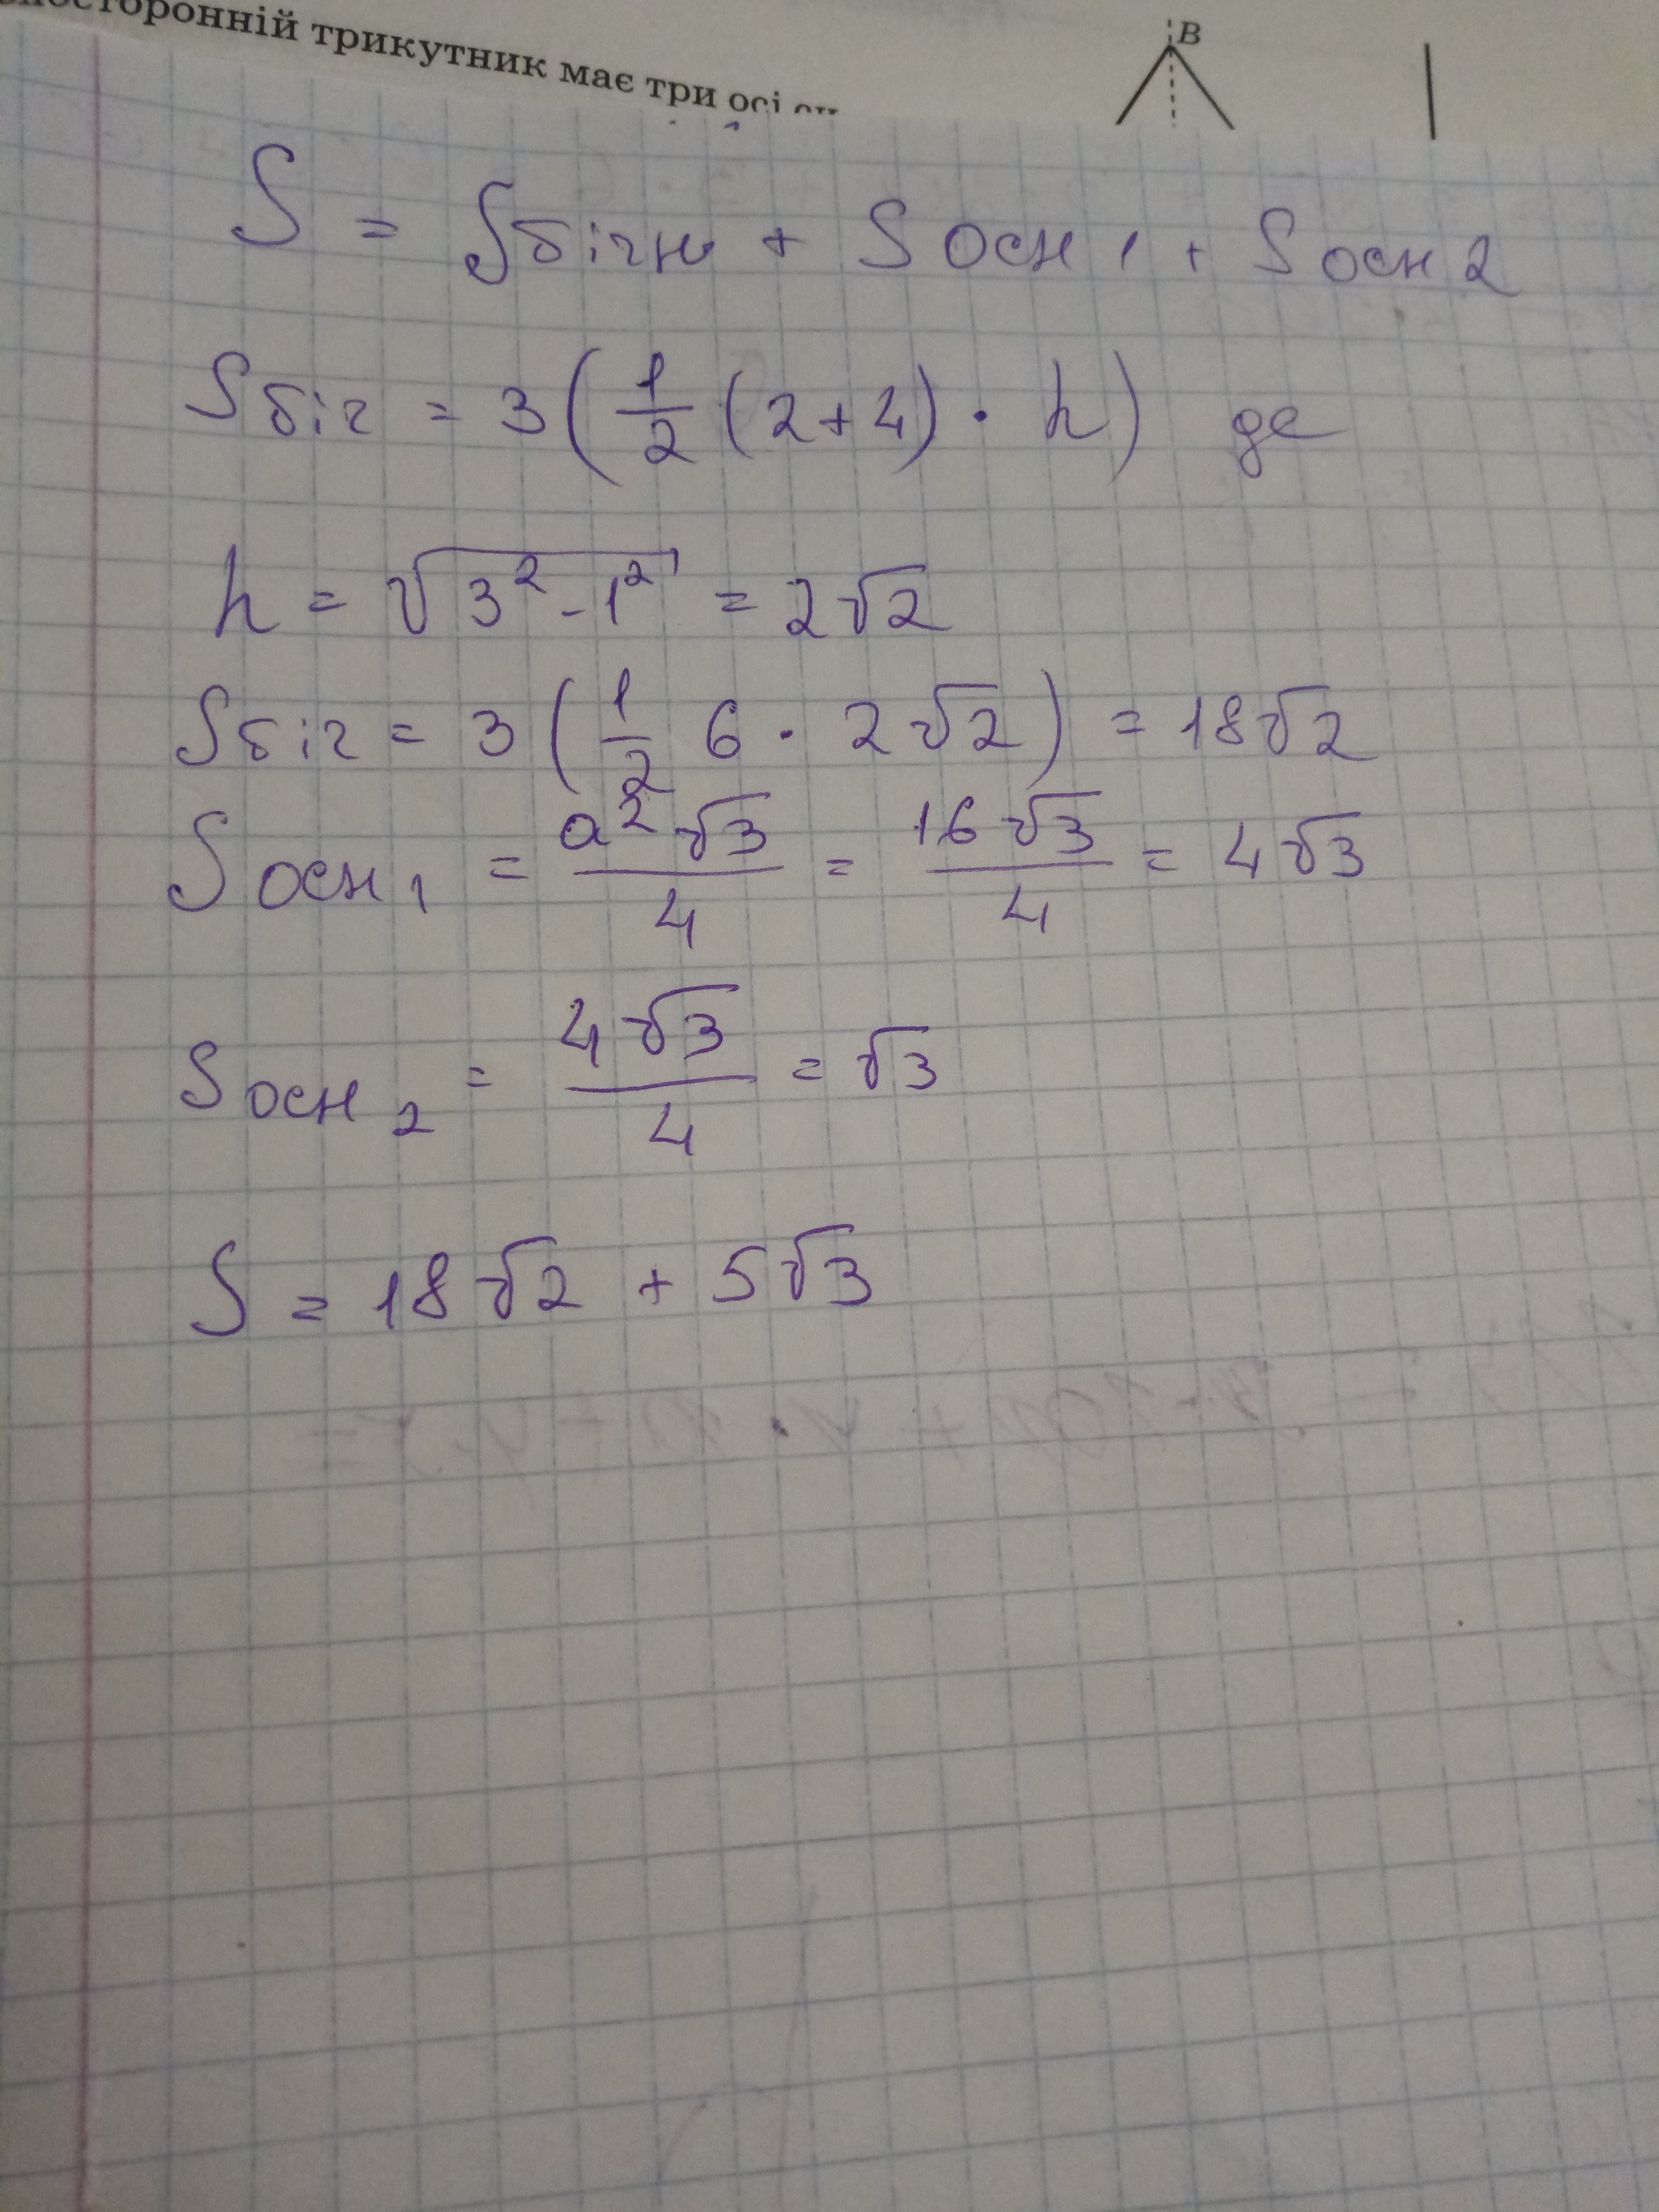 трикутник має три осі
B
S = Sбічн + S осн 1 + S осн 2
S біч = 3(1/2 (2+4) · h) де
h = √(3² - 1²) = 2√2
S біч = 3(1/2 6 · 2√2) = 18√2
S осн 1 = a²√3/4 = 16√3/4 = 4√3
S осн 2 = 4√3/4 = √3
S = 18√2 + 5√3